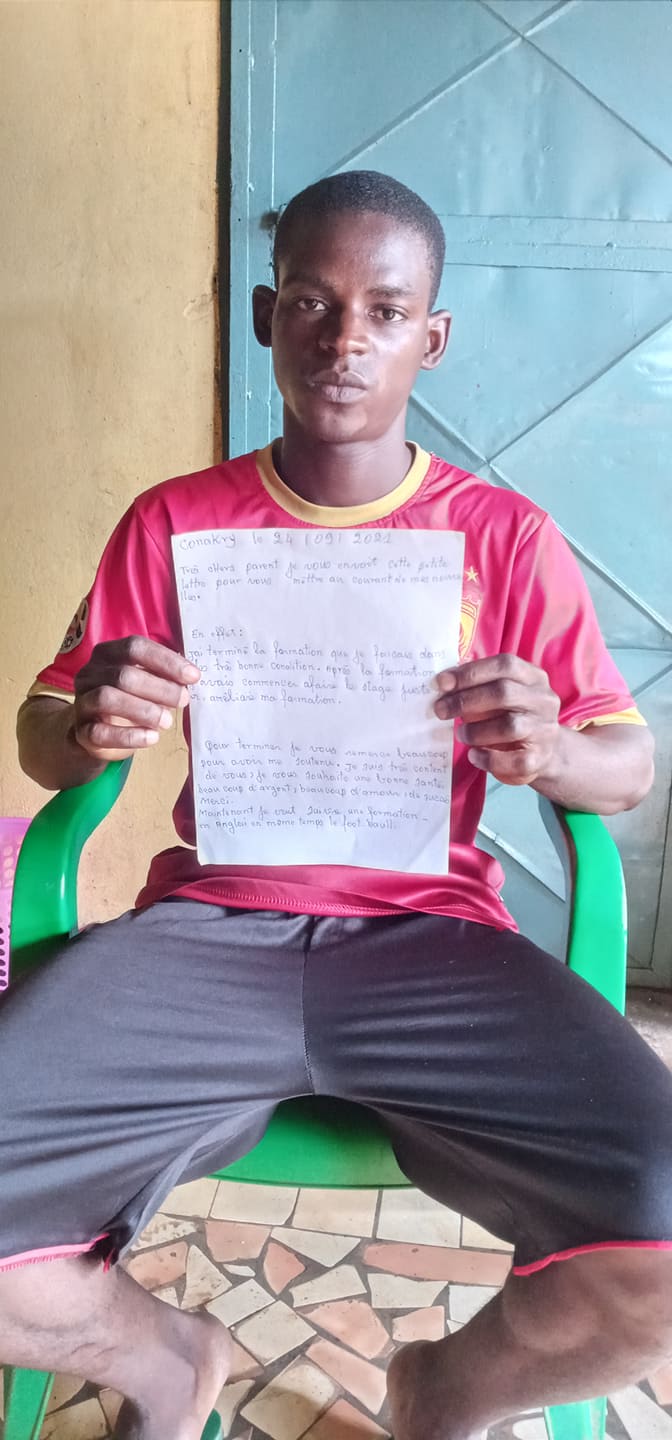 Conakry le 24 / 09 / 2021
Très chers parent je vous envoit cette petite
lettre pour vous mettre au courant de mes nouve
lles.
En effet:
j'ai terminé la formation que je faisais dans
très bonne condition. Après la formation
j'avais commencer afaire le stage juste
améliare ma formation.
Pour terminer je vous remerce beaucoup
pour avoir me soutenu. Je suis très content
de vous; je vous souhaite une bonne santé
beau coup d'argent; beaucoup d'amour; de succes
Merci.
Maintenant je veut suivre une formation -
en Anglais en même temps le foot baull.